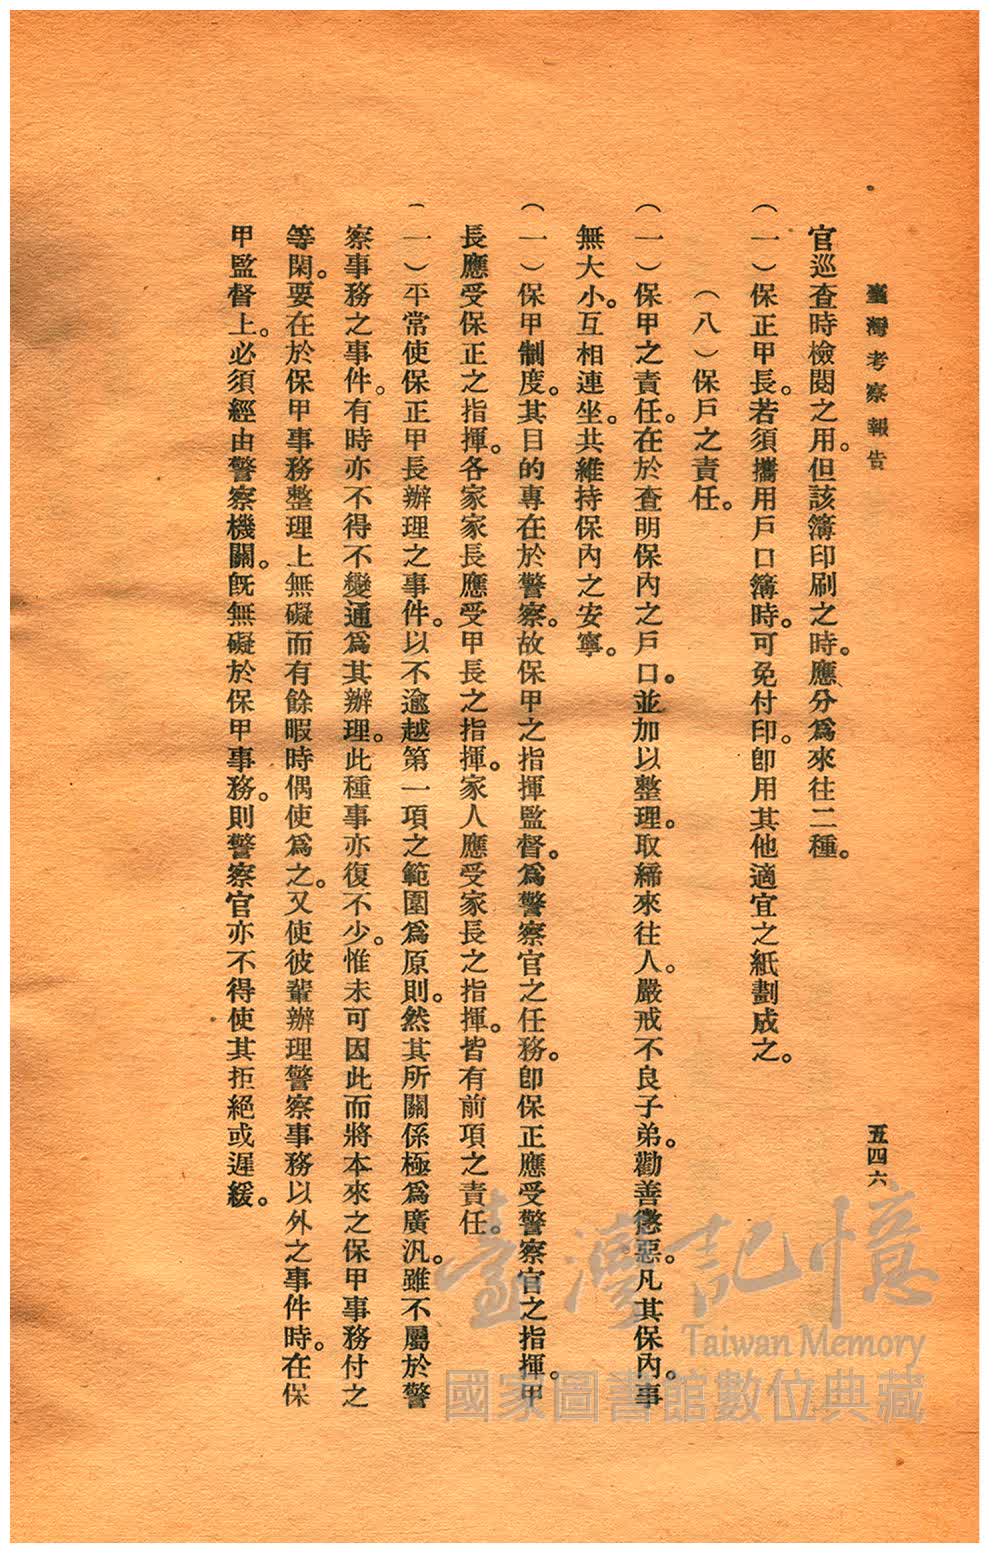 臺灣考察報告
五四六
官巡查時檢閱之用。但該簿印刷之時。應分爲來往二種。
（一）保正甲長。若須攜用戶口簿時。可免付印。卽用其他適宜之紙劃成之。
（八）保戶之責任。
（一）保甲之責任。在於查明保內之戶口。並加以整理。取締來往人。嚴戒不良子弟。勸善懲惡。凡其保內。事
無大小。互相連坐。共維持保內之安寧。
（一）保甲制度。其目的專在於警察。故保甲之指揮監督。爲警察官之任務。卽保正應受警察官之指揮。甲
長應受保正之指揮。各家家長應受甲長之指揮。家人應受家長之指揮。皆有前項之責任。
（一）平常使保正甲長辦理之事件。以不逾越第一項之範圍爲原則。然其所關係極爲廣汎。雖不屬於警
察事務之事件。有時亦不得不變通爲其辦理。此種事亦復不少。惟未可因此而將本來之保甲事務付之
等閑。要在於保甲事務整理上無礙而有餘暇時偶使爲之。又使彼輩辦理警察事務以外之事件時。在保
甲監督上。必須經由警察機關。旣無礙於保甲事務。則警察官亦不得使其拒絕或遲緩。
臺灣記憶
Taiwan Memory
國家圖書館數位典藏